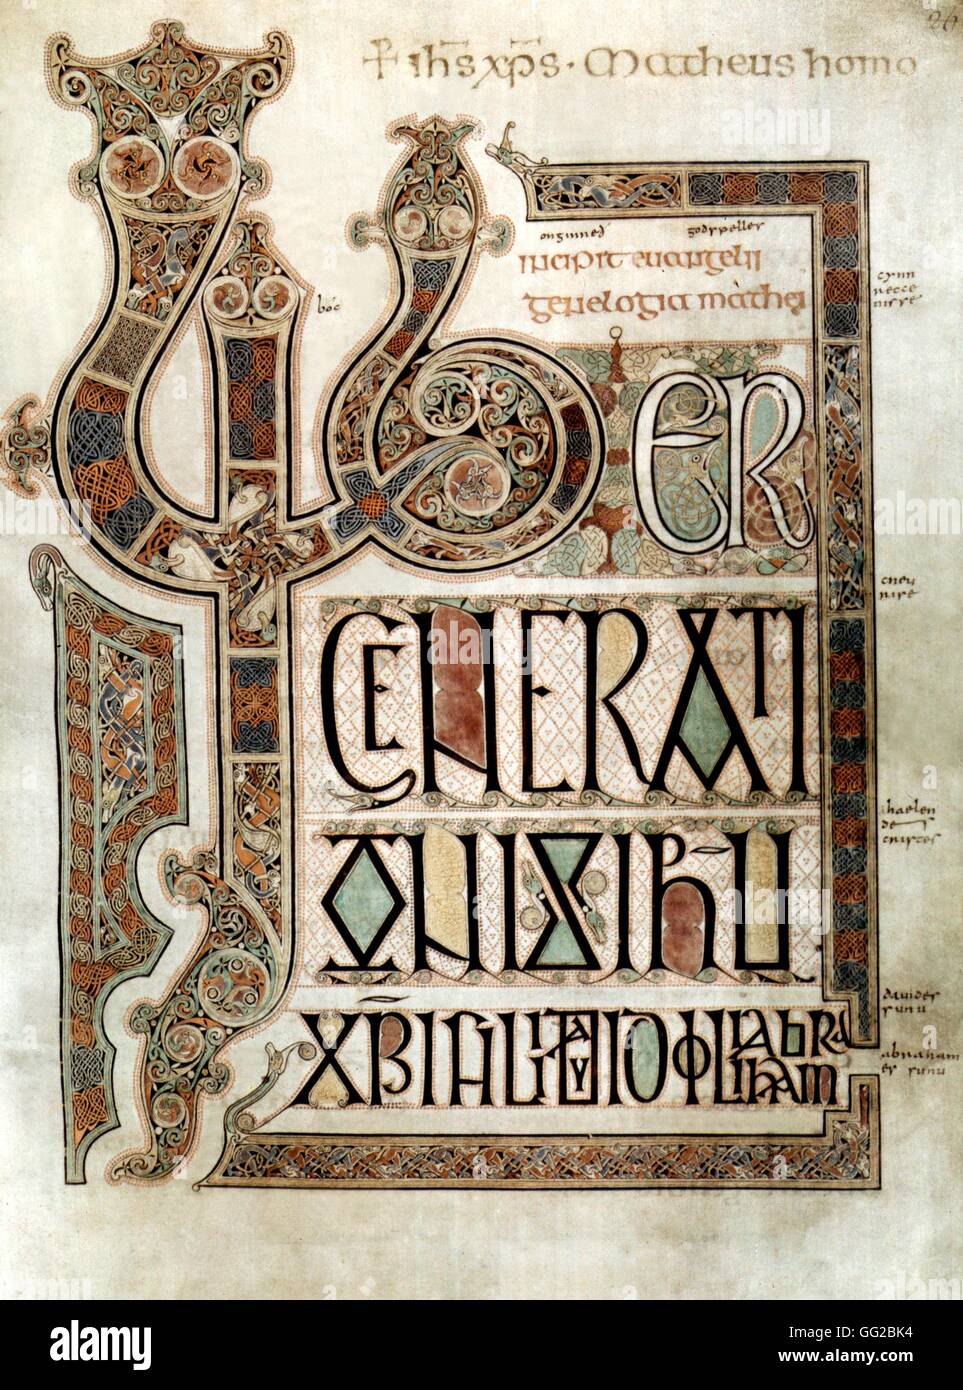 26
✝ ihs xps · Matheus homo
onginned godspelles
incipit euangelii
genelogia mathei
bóc
LIBER
GENERATI
ONIS IHU
XPI FILII DAUID FILII ABRAHAM
cneu
nise
haelen
des
cristes
dauides
sunu
abrahames sunu
alamy
a
alamy stock photo
GG2BK4
www.alamy.com